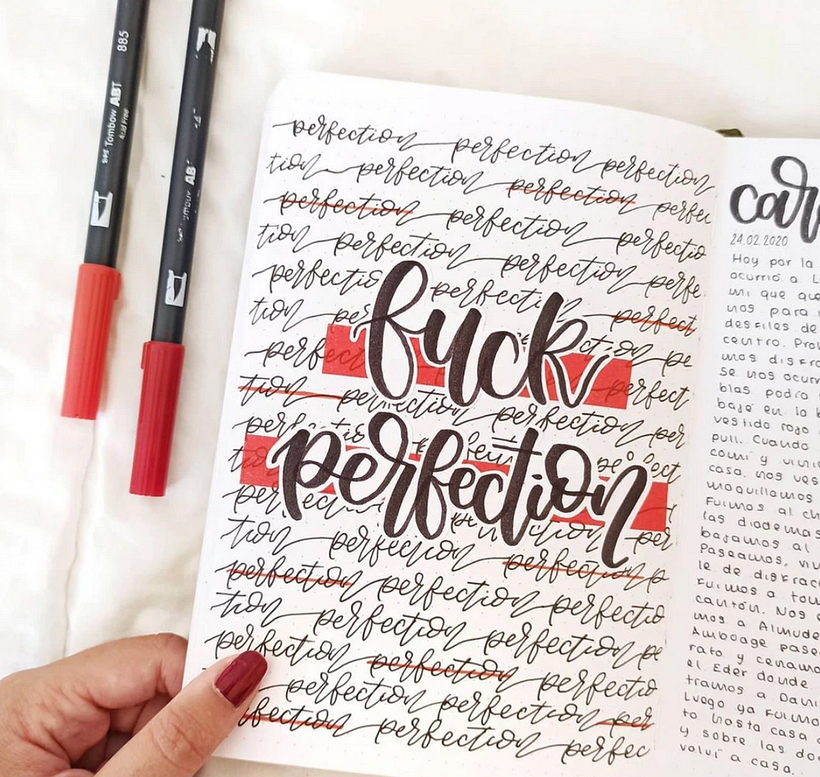 Tombow ABT
885
ABT
perfection perfection perfection
tion perfection perfection perfec
perfection perfection perfectio
tion perfection perfection perfe
perfectio perfecti perfect
fuck
perfection
tion perfection perfection p
perfection perfection perfectio
tion perfection perfection pe
perfection perfection perfectio
perfection perfection per
perfection perfec
car
24.02.2020
Hoy por la
ocurrió a
mi que que
nos para
desfiles de
centro.
nos disfra
se nos ocur
blas podía
bajé en la b
vestido rojo
pull. Cuando
comí y
casa. nos ves
maquillamos
Fuimos al ch
las diademas
bajamos al
Paseamos,
le de disfrac
Fuimos a tom
cantón. Nos
mos a Almude
Amboage pase
rato y cenamo
el Eder donde
tramos a Dani
Luego ya Fuimo
to hasta casa
y sobre las do
volví a casa.